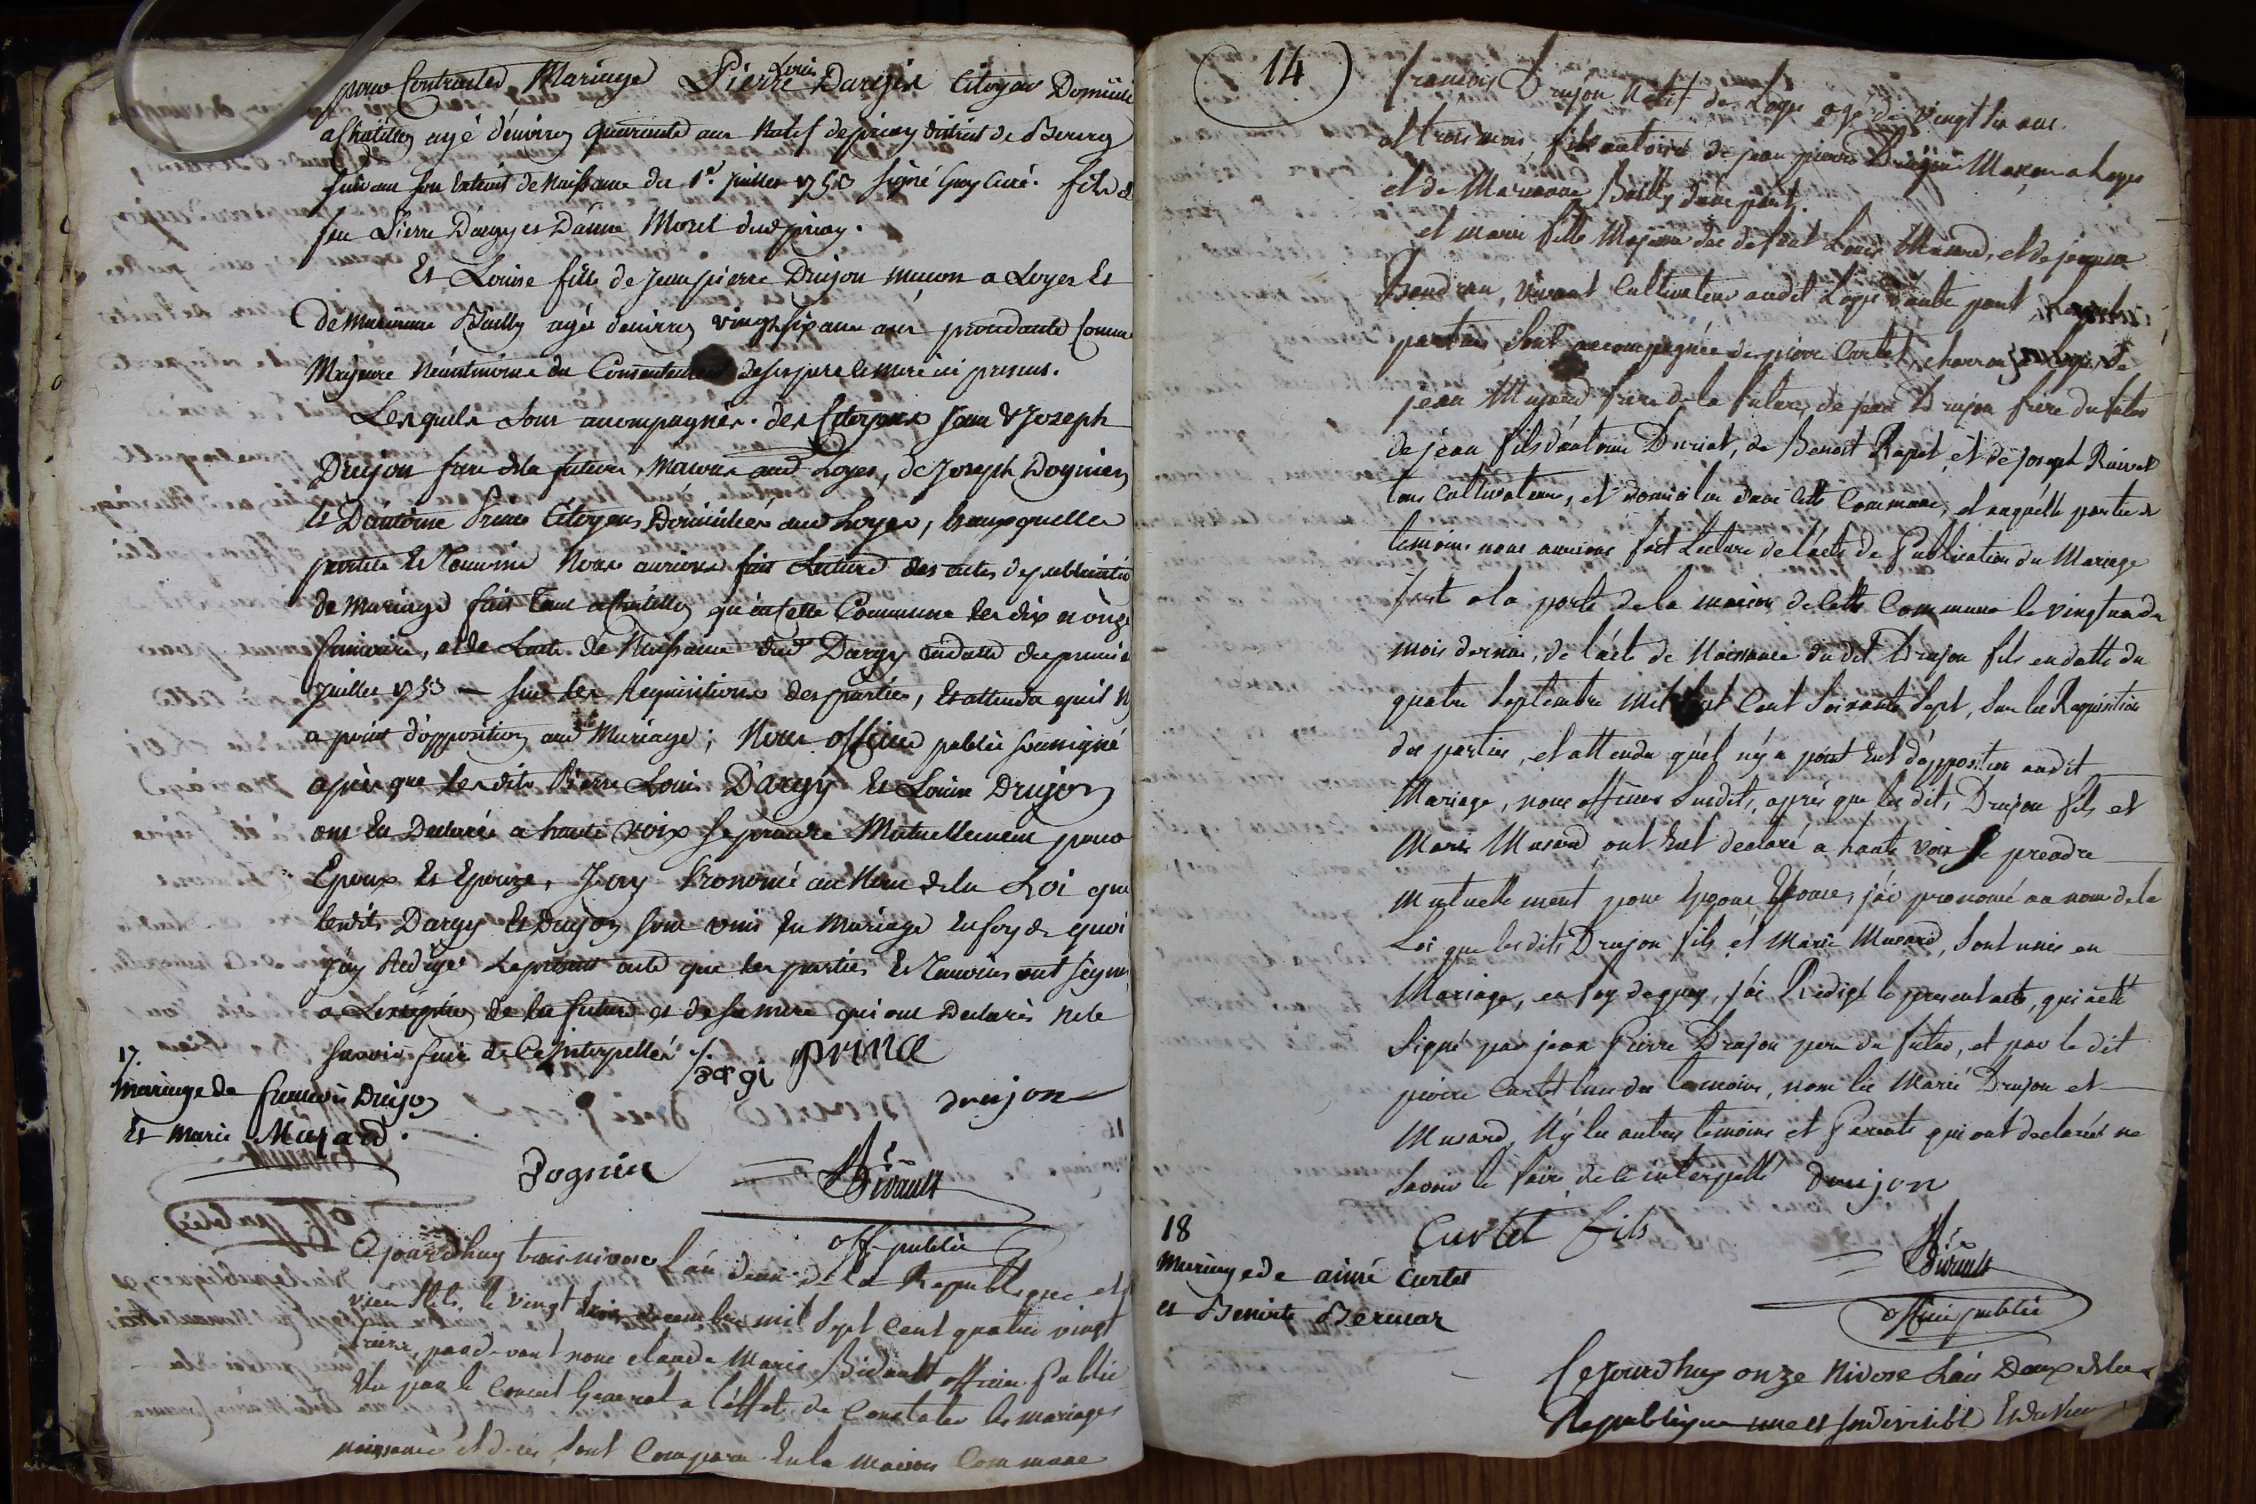 pour Contracter Mariage Pierre Louis Dargis Citoyen Domicilié
a Chatillon agé d'environ quarante ans Natif de priay district de Bourg
suivant son Extrait de Naissance du 1er Juillet 1753 signé Guy Curé. fils de
feu Pierre Dargy et D'anne Morel dud. priay.
Et Louise fille de Jean pierre Drujon macon a Loyes Et
De Marianne Bailly agée d'environ vingt six ans
Majeure Néantmoins du Consentement de ses pere et mere ici presens.
Lesquels sont acompagnés des Citoyens Jean & Joseph
Drujon frere de la future, Macons aud. Loyes, de Joseph Dognin
Et D'antoine Prince Citoyens Domiciliés aud Loyes, auxquelles
parties Et Temoins Nous aurions fait Lecture des actes de publication
de Mariage fait tant a Chatillon qu'en cette Commune les dix et onze
frimaire, et de L'acte de Naissance dud Dargy en datte du premier
juillet 1753 — sur les Requisitions des parties, Et attendu qu'il n'y
a point d'opposition aud Mariage; Nous officier public soussigné
après que lesdits Pierre Louis D'argy Et Louise Drujon
ont Eu Declarés a haute voix se prendre Mutuellement pour
Epoux Et Epouze, J'ay Prononcé au Nom de la Loi que
lesdits Dargy Et Drujon sont unis En Mariage En foy de quoi
j'ay Redigé Le present acte que les parties Et Temoins ont signé
a L'exception de la future et de sa mere qui ont Declarés ne le
savoir faire de Ce Interpellés
dargi prince
drujon
17.
Mariage de francois Drujon
Et Marie Musard.
Dognin
Bidault
off. public
Cejourd'huy trois nivose L'an deux de la Republique et
vieu stile, le vingt trois decembre mil Sept Cent quatre vingt
treize, pardevant nous claude Marie Bidault officier Public
Elu par le Conseil General a l'effet de Constater les mariages
naissances et deces, Sont Comparu En la Maison Commune
14
francois Drujon Natif de Loyes agé de vingt six ans
et trois mois, fils autorisé de jean pierre Drujon Macon a Loyes
et de Marianne Bailly d'une part.
et marie fille Majeure de defunt Louis Musard, et de
Gaudran, vivant Cultivateur audit Loyes d'autre part
parties sont accompagnées de pierre Curtet, charron a Loyes, de
jean Musard frere de la future, de jean Drujon frere du futur
de jean fils d'antoine Duriat, de Benoit Rapet, et de joseph
tous Cultivateurs, et domiciliés dans cette Commune, et auquelle parties et
temoins nous aurions fait Lecture de l'acte de Publication du Mariage
fait a la porte de la maison de cette Commune le vingt un du
mois dernier, de l'acte de Naissance du dit Drujon fils en datte du
quatre Septembre mil Sept Cent Soixante Sept, Sur les Requisition
des parties, et attendu qu'il n'y a point Eut d'opposition audit
Mariage, nous officier Susdit, après que les dits Drujon fils et
Marie Musard ont Eut declaré a haute voix Se prendre
mutuellement pour Epoux Epouse, j'ai prononcé au nom de la
Loi que les dits Drujon fils et Marie Musard, Sont unis en
Mariage, en foy de quoy, j'ai Redigé le present acte, qui a été
Signé par jean Pierre Drujon pere du futur, et par le dit
pierre Curtet l'un des temoins, non les Marié Drujon et
Musard, N'y les autres temoins et Parents qui ont declarés ne
Savoir le faire de ce interpellé drujon
Curtet fils
Bidault
officier public
18
Mariage de aimé Curtet
et Benoite Bernar
Cejourd'huy onze Nivose L'an Deux de la
Republique une et Indivisible Et du Vieux